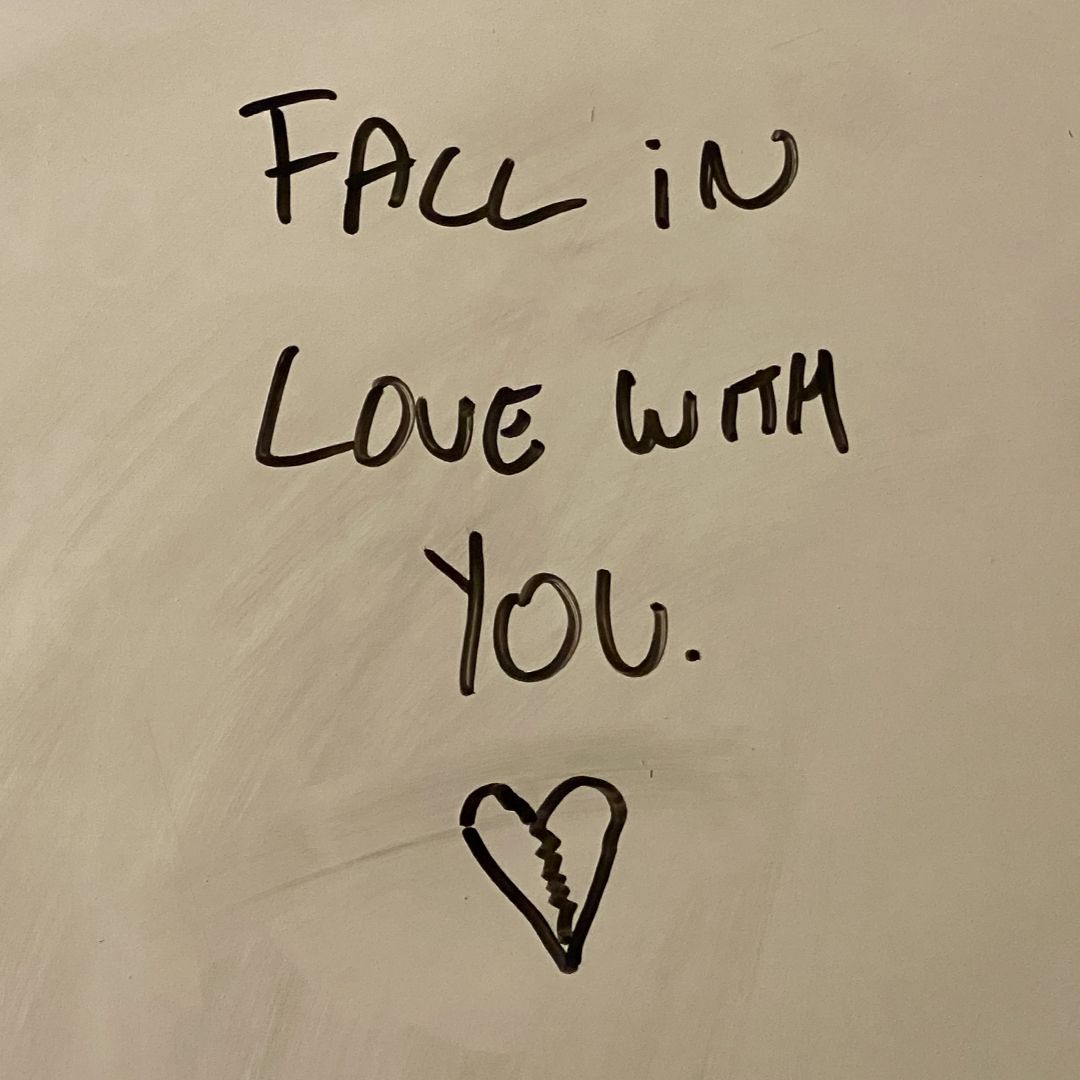 FALL iN
LOVE WITH
YOU.